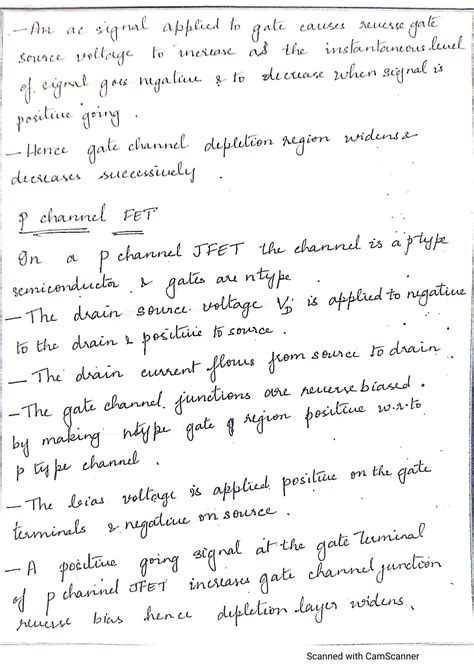 - An ac signal applied to gate causes reverse gate
source voltage to increase as the instantaneous level
of signal goes negative & to decrease when signal is
positive going.
- Hence gate channel depletion region widens &
decreases successively.
P channel FET
In a p channel JFET the channel is a ptype
semiconductor & gates are ntype
- The drain source voltage VD is applied to negative
to the drain & positive to source.
- The drain current flows from source to drain.
- The gate channel junctions are reverse biased.
by making ntype gate region positive w.r.to
p type channel.
- The bias voltage is applied positive on the gate
terminals & negative on source.
- A positive going signal at the gate terminal
of p channel JFET increases gate channel junction
reverse bias hence depletion layer widens.
Scanned with CamScanner